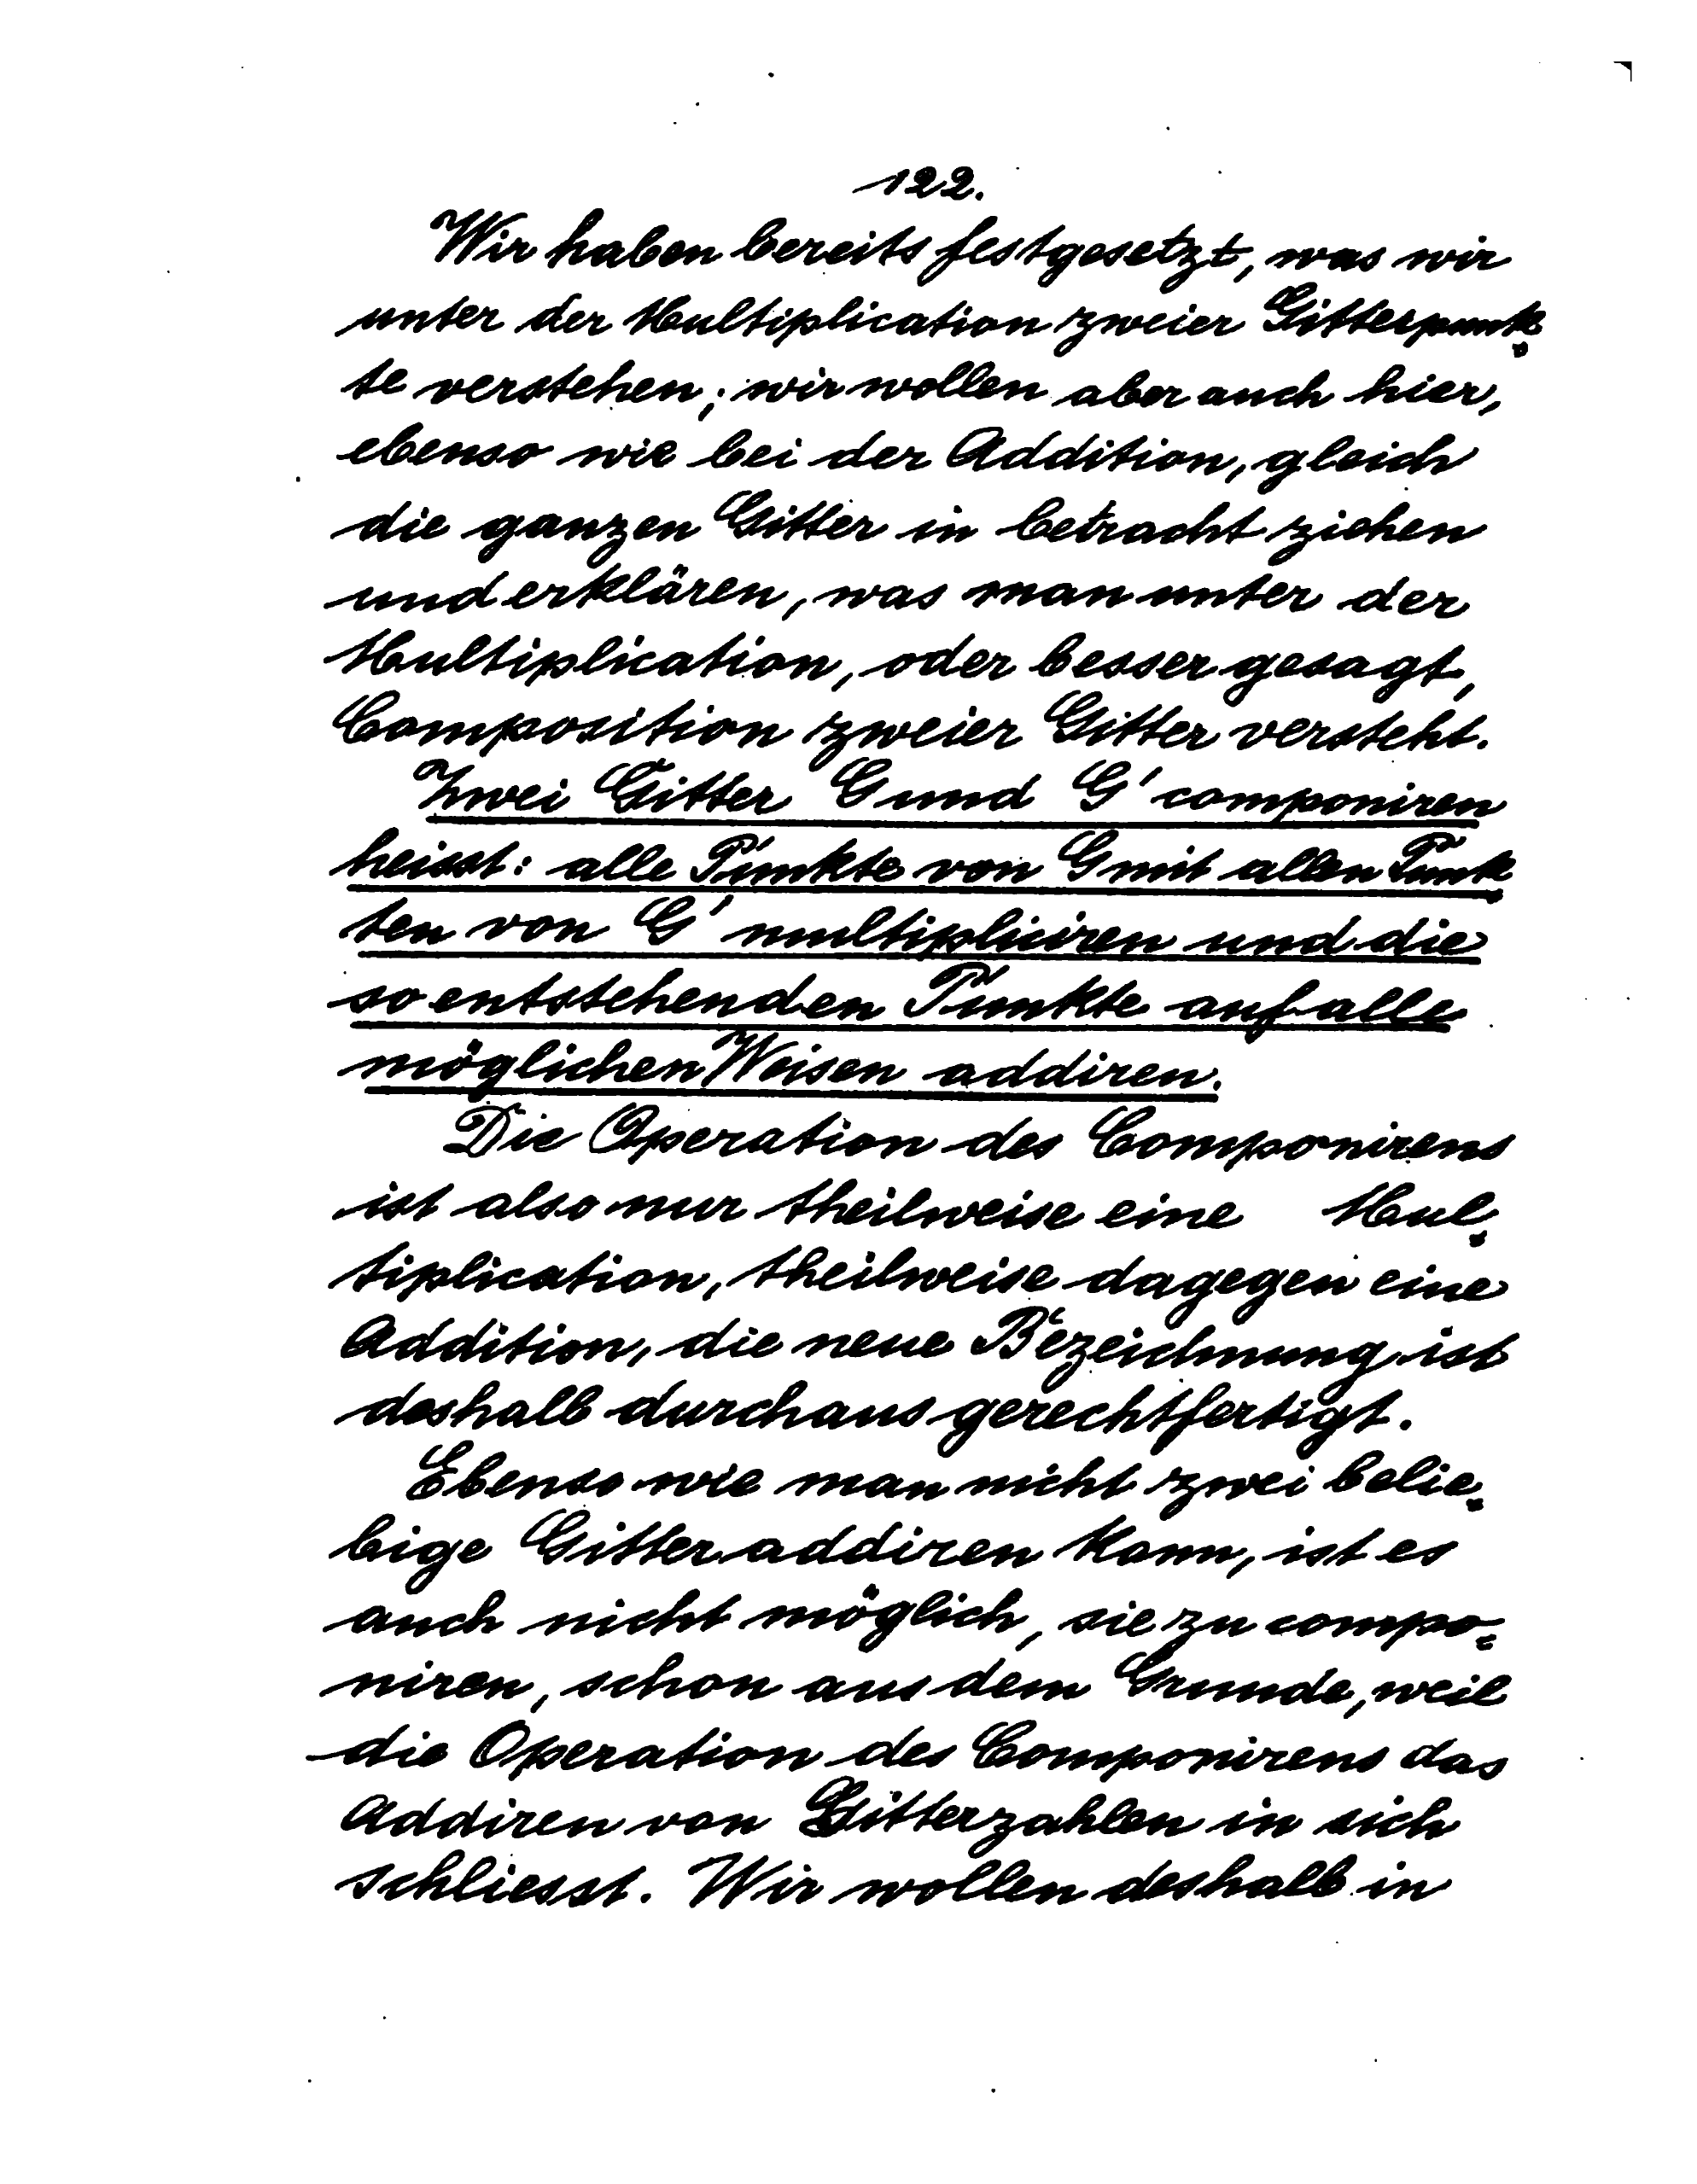 122.
Wir haben bereits festgesetzt, was wir
unter der Multiplication zweier Gitterpunk-
te verstehen; wir wollen aber auch hier,
ebenso wie bei der Addition, gleich
die ganzen Gitter in betracht ziehen
und erklären, was man unter der
Multiplication, oder besser gesagt,
Composition zweier Gitter versteht.
Zwei Gitter G und G' componiren
heisst: alle Punkte von G mit allen Punk-
ten von G' multipliciren und die
so entstehenden Punkte auf alle
möglichen Weisen addiren.
Die Operation des Componirens
ist also nur theilweise eine Mul-
tiplication, theilweise dagegen eine
Addition, die neue Bezeichnung ist
deshalb durchaus gerechtfertigt.
Ebenso wie man nicht zwei belie-
bige Gitter addiren kann, ist es
auch nicht möglich, sie zu compo-
niren, schon aus dem Grunde, weil
die Operation des Componirens das
Addiren von Gitterzahlen in sich
schliesst. Wir wollen deshalb in